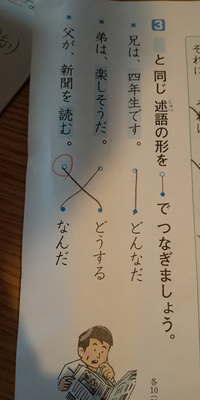 3 と同じ述語の形を●―●でつなぎましょう。
じゅつ
各10
兄は、四年生です。
どんなだ
弟は、楽しそうだ。
どうする
父が、新聞を読む。
なんだ